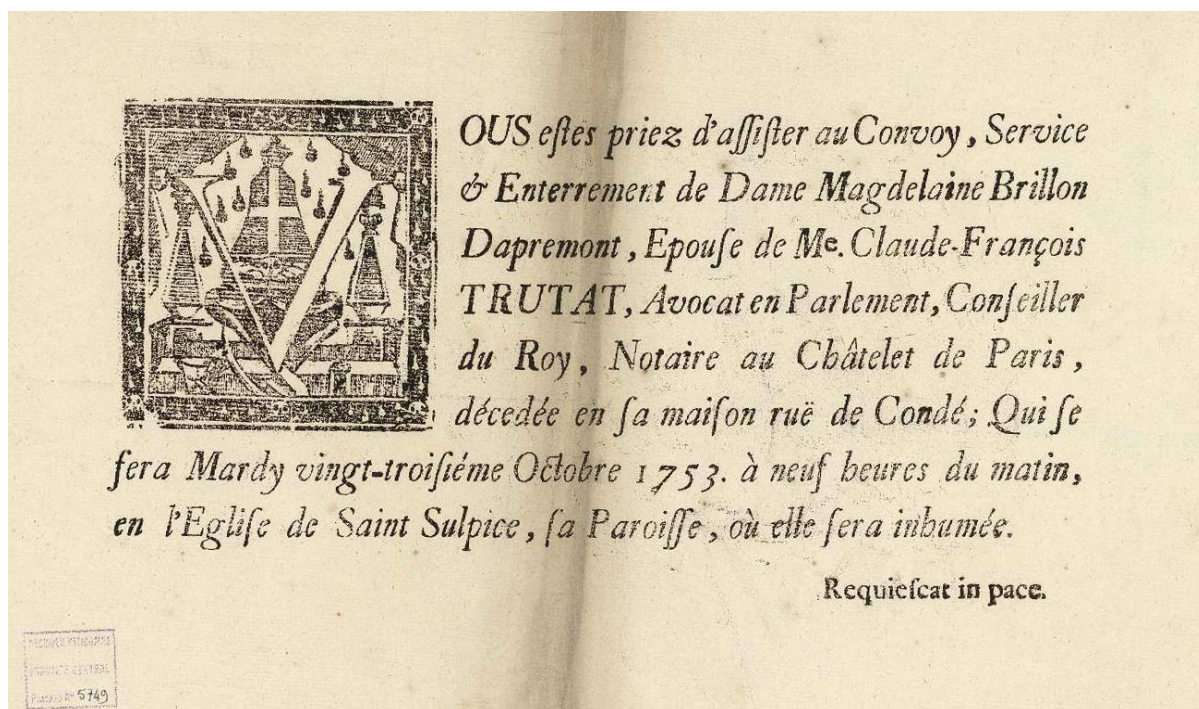 VOUS eſtes priez d'aſſiſter au Convoy, Service
& Enterrement de Dame Magdelaine Brillon
Dapremont, Epouſe de Me. Claude-François
TRUTAT, Avocat en Parlement, Conſeiller
du Roy, Notaire au Châtelet de Paris,
décedée en ſa maiſon ruë de Condé; Qui ſe
fera Mardy vingt-troiſiéme Octobre 1753. à neuf heures du matin,
en l'Egliſe de Saint Sulpice, ſa Paroiſſe, où elle ſera inhumée.
Requieſcat in pace.
5749